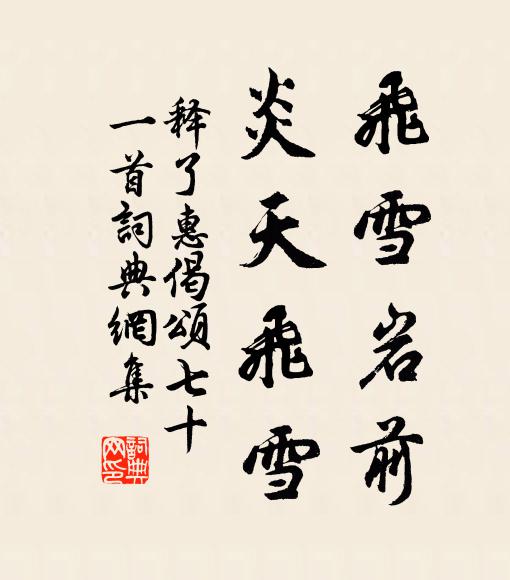 飛雪岩前
炎天飛雪
释了惠偈頌七十
一首詞典網集
詞典网印